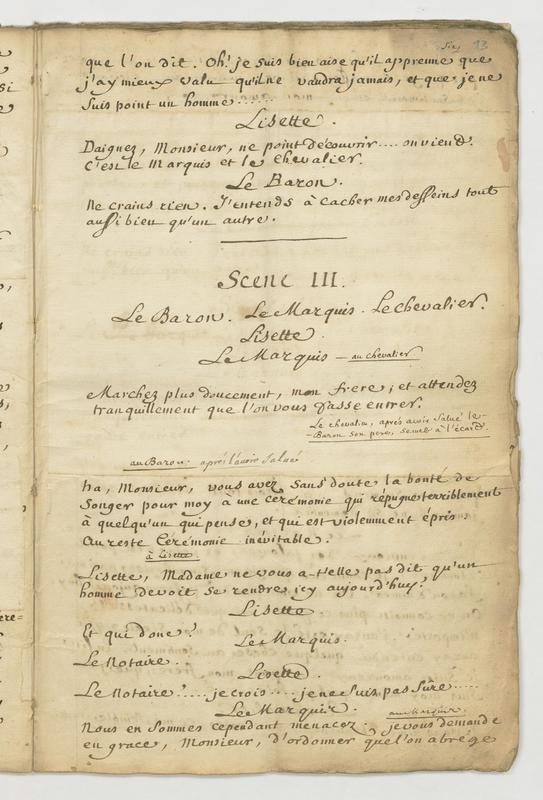 13
que l'on dit. Oh! je suis bien aise qu'il apprenne que
j'ay mieux valu qu'il ne vaudra jamais, et que je ne
suis point un homme ......
Lisette.
Daignez, Monsieur, ne point découvrir .... on vient.
C'est le Marquis et le Chevalier.
Le Baron.
Ne crains rien. J'entends à cacher mes desseins tout
aussi bien qu'un autre.
Scene III.
Le Baron. Le Marquis. Le Chevalier.
Lisette
Le Marquis — au chevalier
Marchez plus doucement, mon frere, et attendez
tranquillement que l'on vous fasse entrer.
Le chevalier, après avoir salué le
Baron son pere, se met à l'écard.
au Baron: après l'avoir salué
ha, Monsieur, vous avez sans doute la bonté de
songer pour moy à une cerémonie qui répugne terriblement
à quelqu'un qui pense, et qui est violemment épris.
Au reste Cerémonie inévitable.
à Lisette
Lisette, Madame ne vous a-t-elle pas dit qu'un
homme devoit se rendre icy aujourd'huy?
Lisette
Et qui donc?
Le Marquis.
Le Notaire..
Lisette
Le Notaire? .... je crois .... je ne suis pas sûre .....
Le Marquis.
Nous en sommes cependant menacez. je vous demande
en grace, Monsieur, d'ordonner que l'on abrége